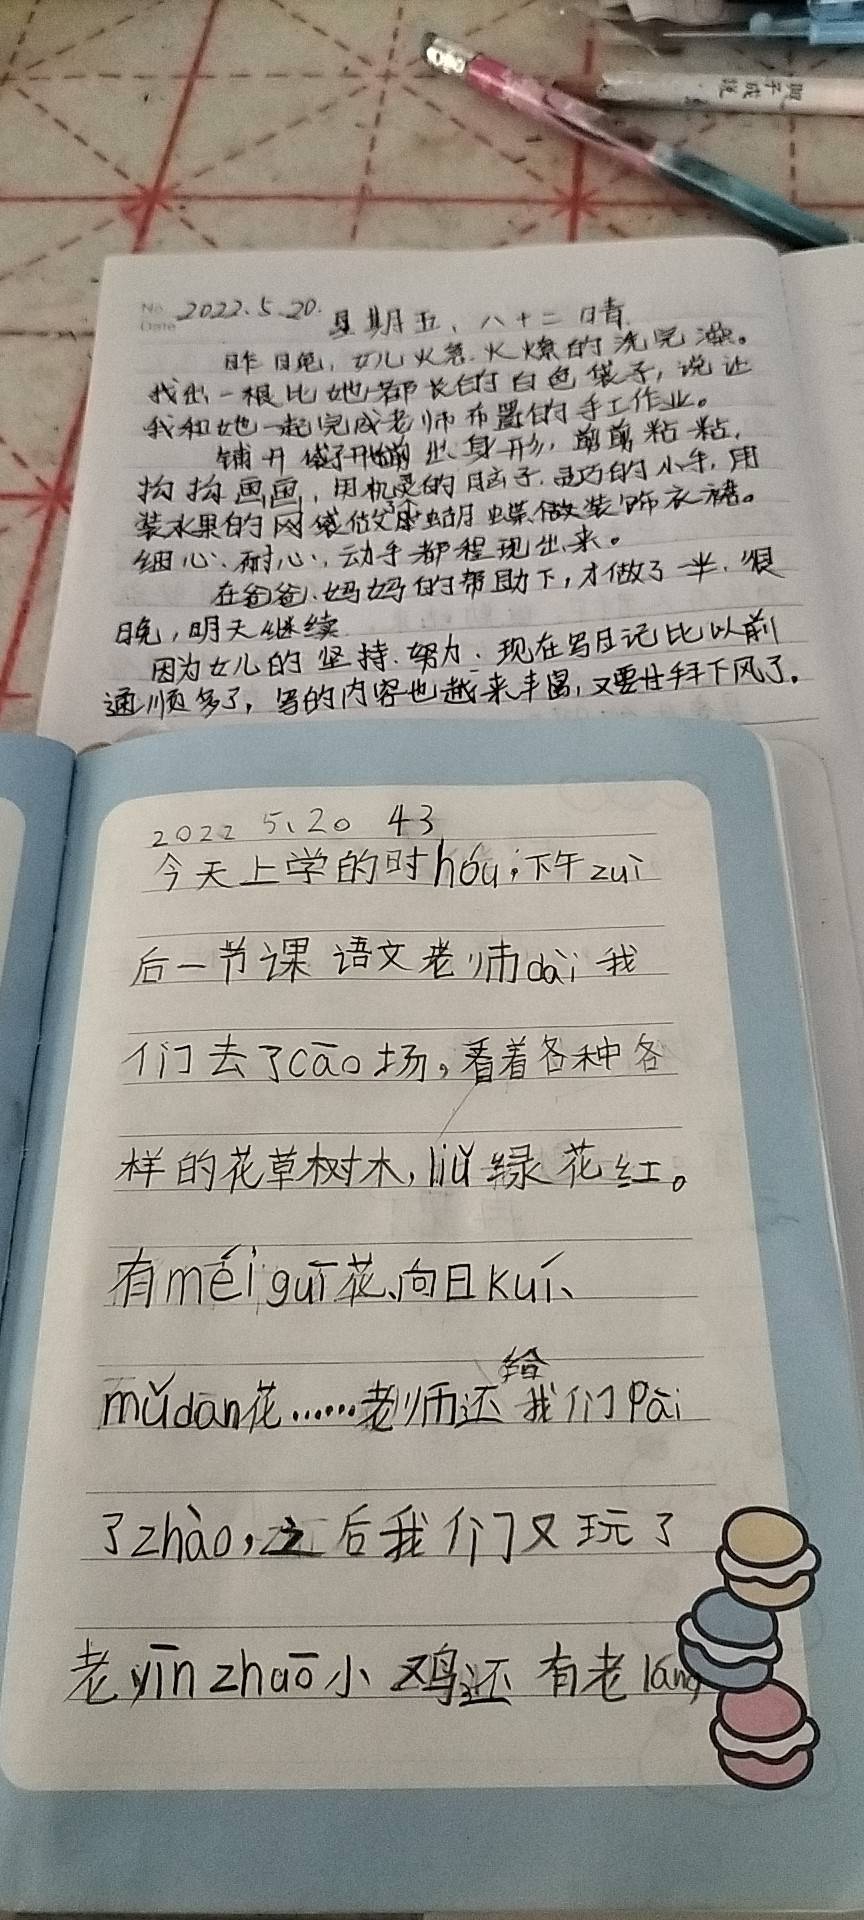 No.
Date
2022.5.20. 星期五、八十二 晴
昨日晚,女儿火急火燎的洗完澡。
找出一根比她都长的白色袋子,说让
我和她一起完成老师布置的手工作业。
铺开袋子开始剪出身形,剪剪粘粘,
拘拘画画,用机灵的脑子.灵巧的小手,用
装水果的网袋做 蝴蝶做装饰衣裙。
细心、耐心、动手都程现出来。
在爸爸、妈妈的帮助下,才做了一半.很
晚,明天继续
因为女儿的坚持.努力、现在写日记比以前
通顺多了,写的内容也越来丰富,又要甘拜下风了。
2022 5、20 43
今天上学的时hóu,下午zuì
后一节课语文老师dài我
们去了cāo场,看着各种各
样的花草树木,liǔ绿花红。
有méi guī花、向日kuí、
mǔdān花……老师还给我们Pāi
了zhào,之后我们又玩了
老yīng zhuō小鸡还有老láng